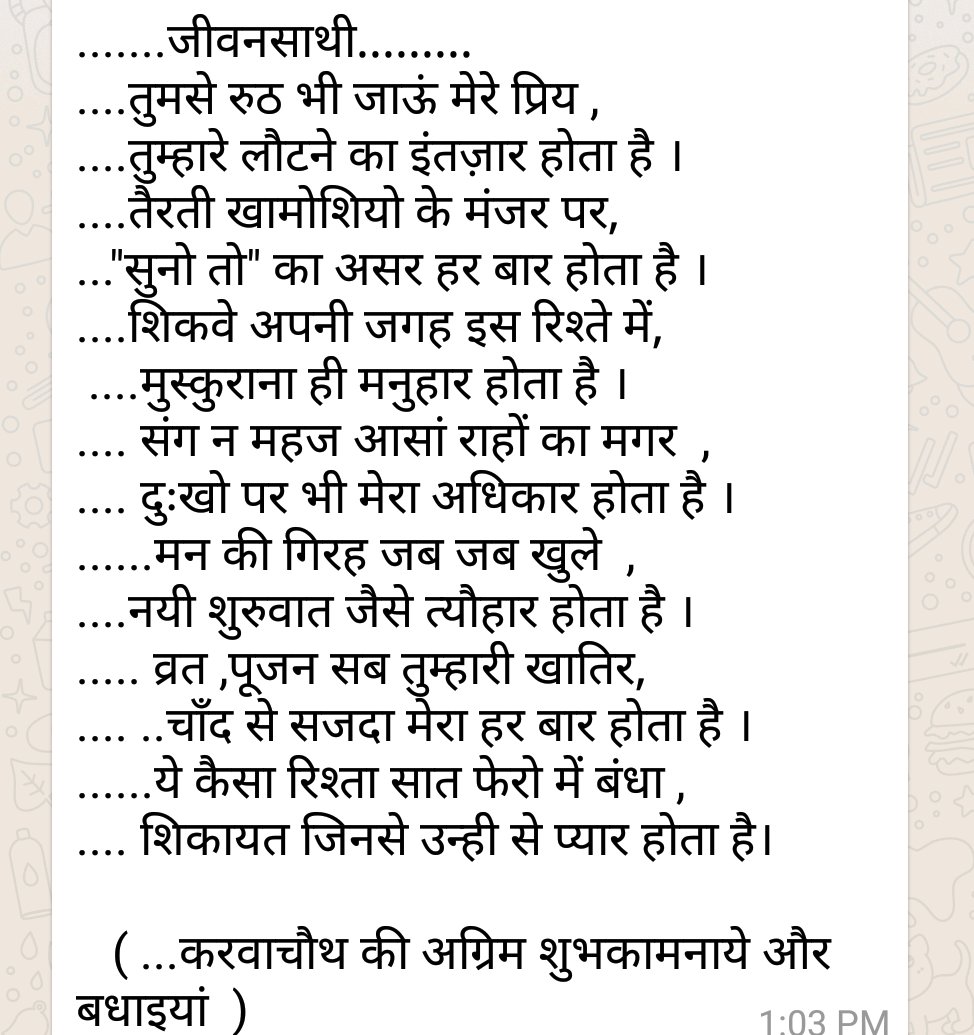 .......जीवनसाथी.........
....तुमसे रुठ भी जाऊं मेरे प्रिय ,
....तुम्हारे लौटने का इंतज़ार होता है ।
....तैरती खामोशियो के मंजर पर,
..."सुनो तो" का असर हर बार होता है ।
....शिकवे अपनी जगह इस रिश्ते में,
....मुस्कुराना ही मनुहार होता है ।
.... संग न महज आसां राहों का मगर  ,
.... दुःखो पर भी मेरा अधिकार होता है ।
......मन की गिरह जब जब खुले  ,
....नयी शुरुवात जैसे त्यौहार होता है ।
..... व्रत ,पूजन सब तुम्हारी खातिर,
.... ..चाँद से सजदा मेरा हर बार होता है ।
......ये कैसा रिश्ता सात फेरो में बंधा ,
.... शिकायत जिनसे उन्ही से प्यार होता है।
( ...करवाचौथ की अग्रिम शुभकामनाये और
बधाइयां  )
1:03 PM